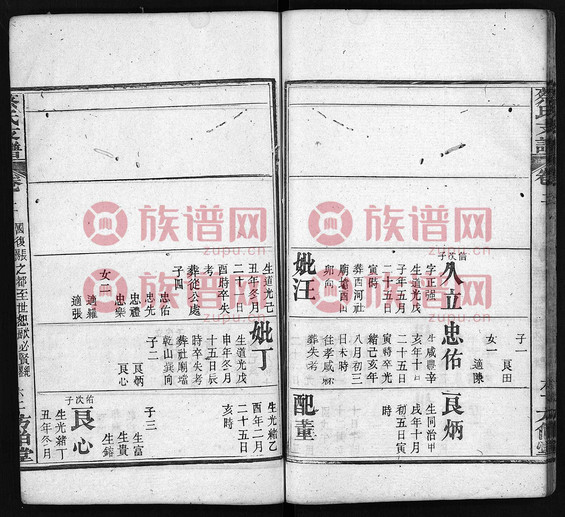 蔡氏支譜
卷二
佾次子
人立
字正強
生道光戊
子年五月
二十五日
寅時
葬西河社
廟塲酉山
卯向
妣汪
生道光己
丑年冬月
二十一日
酉時卒失
考
葬從公處
子四
忠佑
忠先
忠禮
忠樂
女二
適羅
適張
忠佑
生咸豐辛
亥年十月
二十五日
寅時卒光
緒己亥年
八月初三
日未時
葬失考
妣丁
生道光戊
申年冬月
十五日辰
時卒失考
葬社廟塲
乾山巽向
子二
良炳
良心
子一
良田
女一
適陳
良炳
生同治甲
戌年十月
初五日寅
時
配董
生光緒乙
酉年二月
二十五日
亥時
子三
生富
生貴
生鎔
佑次子
良心
生光緒丁
丑年冬月
蔡氏支譜
卷二
族谱网
zupu.cn
族谱网
zupu.cn